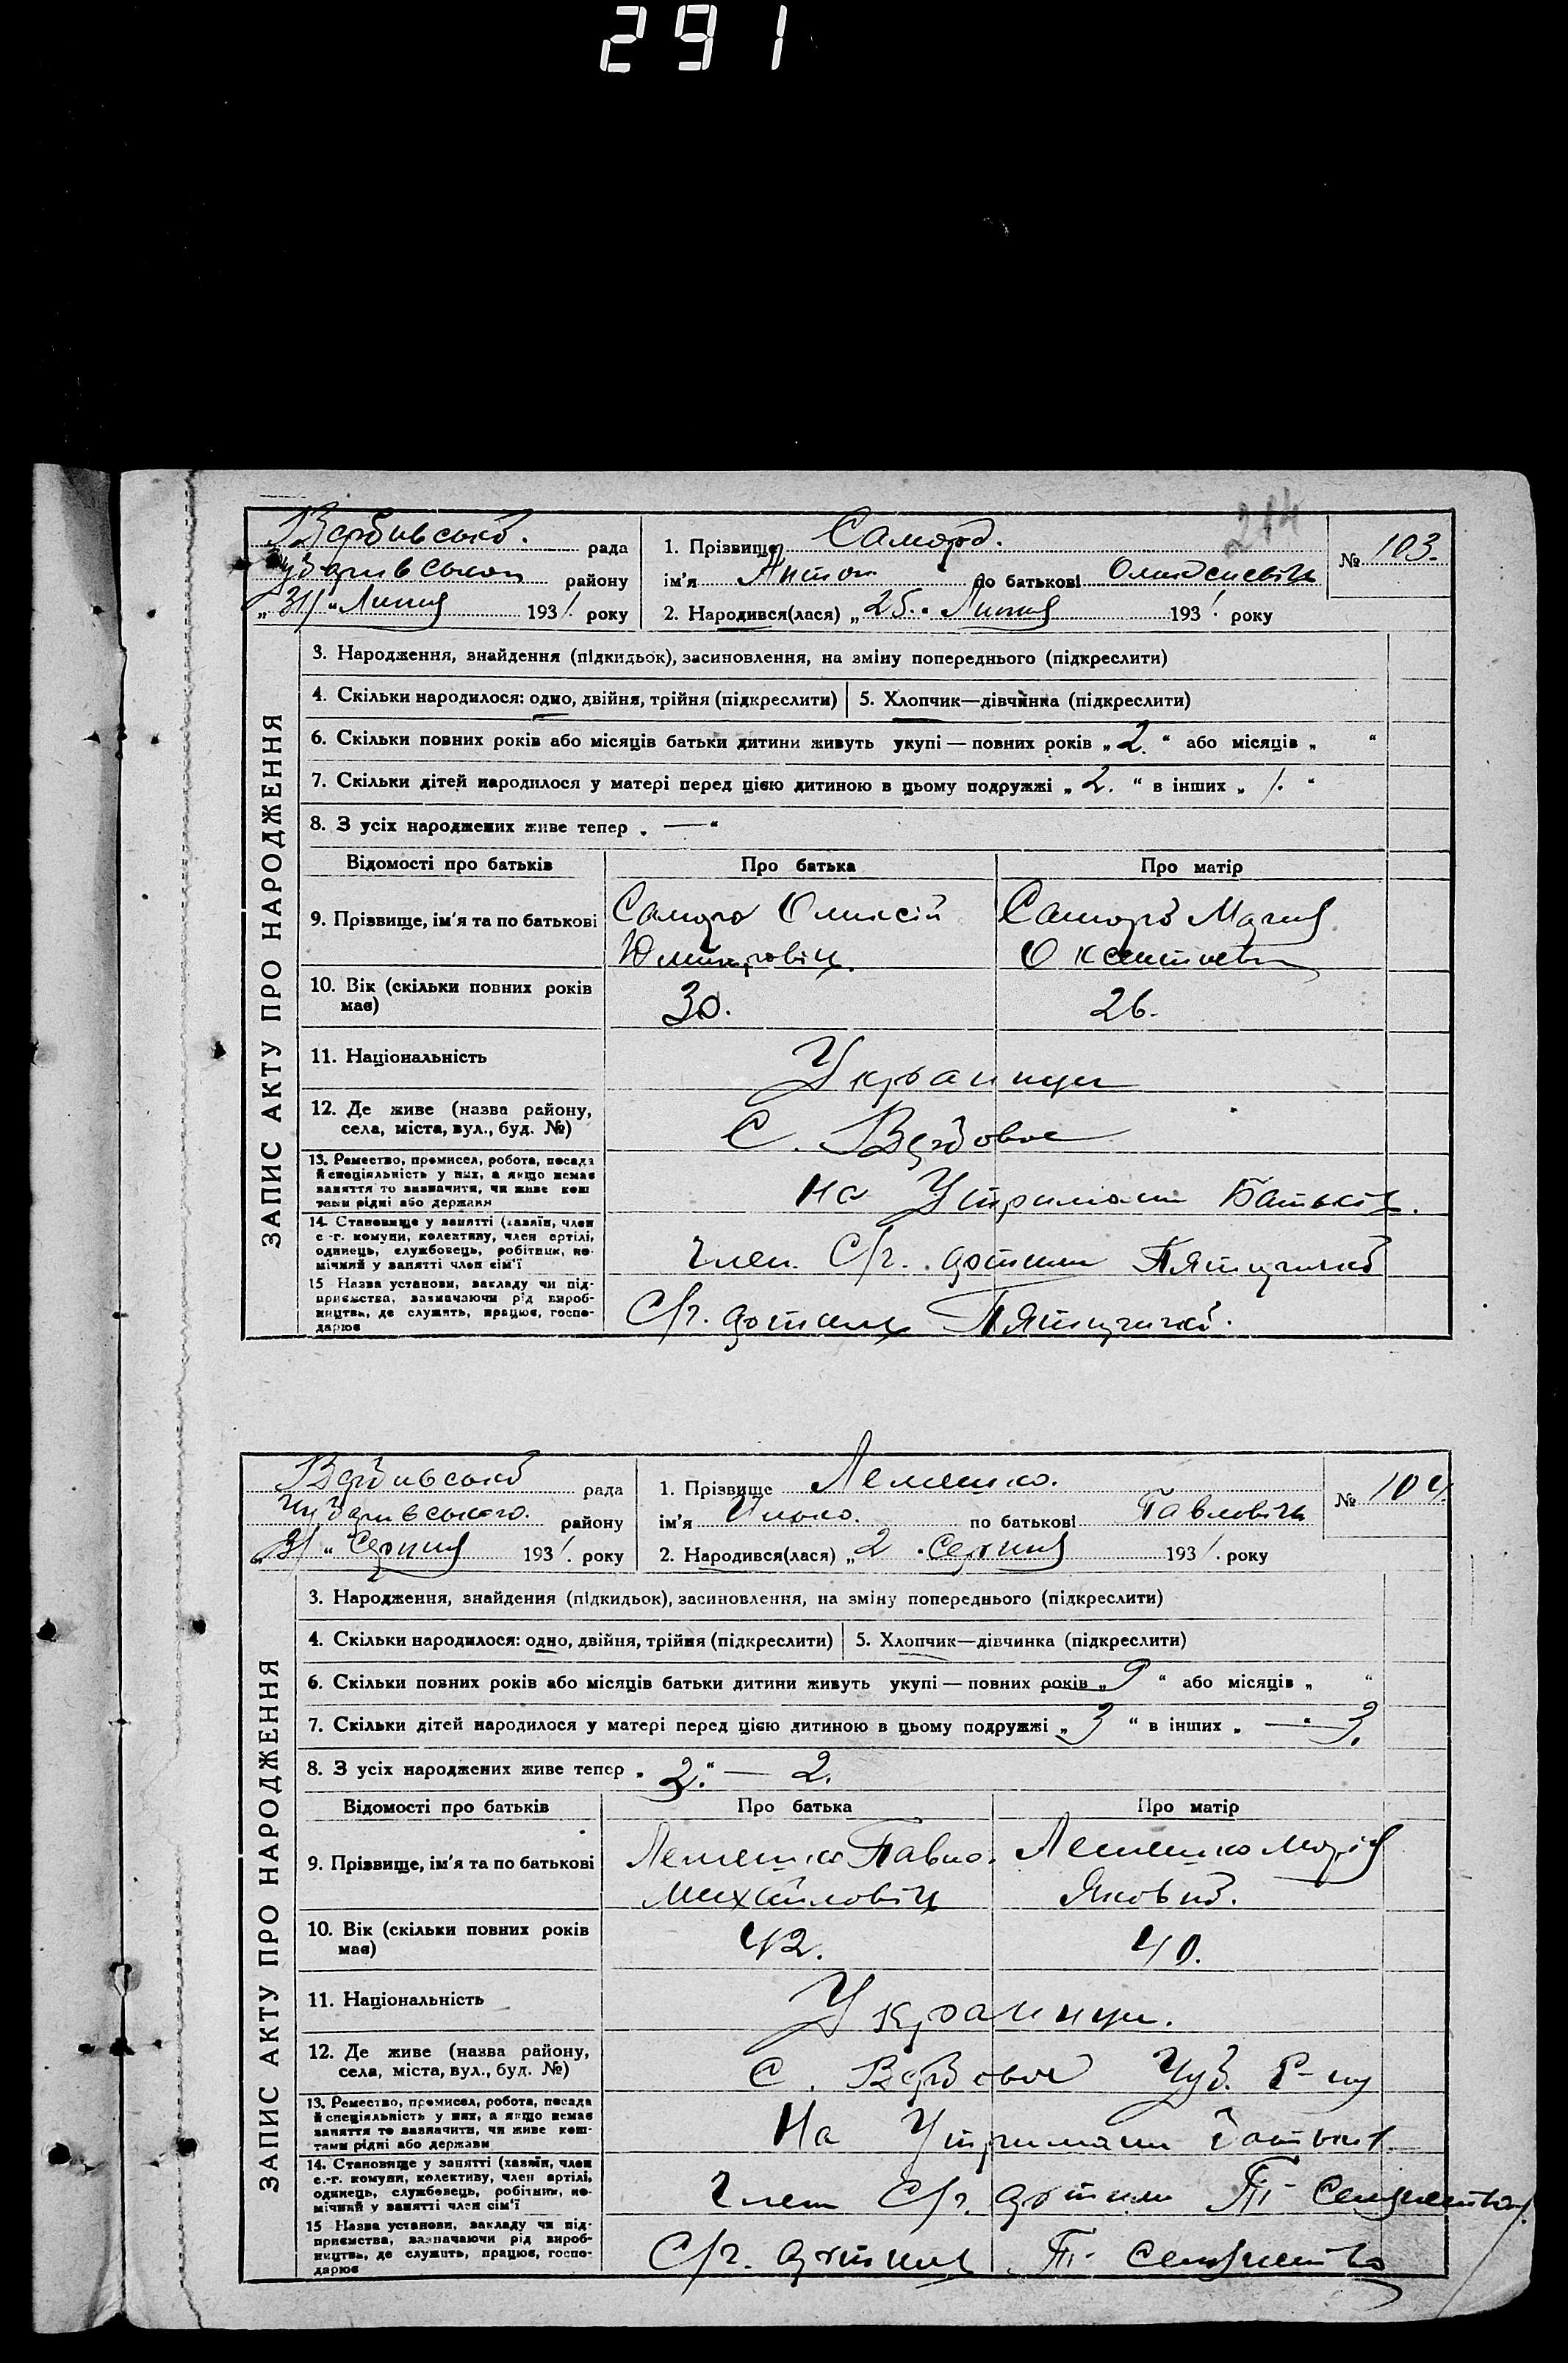 291
214
Вербивської рада
Чубарівського району
„31“ Липня 1931 року
1. Прізвище Саморд. № 103.
ім'я Антон по батькові
2. Народився(лася) „25“ Липня 1931 року
ЗАПИС АКТУ ПРО НАРОДЖЕННЯ
3. Народження, знайдення (підкидьок), засиновлення, на зміну попереднього (підкреслити)
4. Скільки народилося: одно, двійня, трійня (підкреслити) 5. Хлопчик—дівчинка (підкреслити)
6. Скільки повних років або місяців батьки дитини живуть укупі — повних років „2.“ або місяців „ “
7. Скільки дітей народилося у матері перед цією дитиною в цьому подружжі „2.“ в інших „ “
8. З усіх народжених живе тепер „—“
Відомості про батьків Про батька Про матір
9. Прізвище, ім'я та по батькові
10. Вік (скільки повних років має) 30. 26.
11. Національність Украинци
12. Де живе (назва району, села, міста, вул., буд. №) С. Вербове
13. Ремество, промисел, робота, посада й спеціяльність у них, а якщо немає заняття то визначити, чи живе коштами рідні або держави На Утримани Батьків.
14. Становище у занятті (хазяїн, член с.-г. комуни, колективу, член артілі, одинець, службовець, робітник, помічний у занятті член сім'ї Член С/г. артили Пятирички
15 Назва установи, закладу чи підприємства, зазначаючи рід виробництва, де служить, працює, господарює С/г. артиль Пятирички.
Вербивської рада
Чубарівського району
„31“ Серпня 1931 року
1. Прізвище Лемешко. № 104.
ім'я по батькові Павловіч
2. Народився(лася) „2“ Серпня 1931 року
ЗАПИС АКТУ ПРО НАРОДЖЕННЯ
3. Народження, знайдення (підкидьок), засиновлення, на зміну попереднього (підкреслити)
4. Скільки народилося: одно, двійня, трійня (підкреслити) 5. Хлопчик—дівчинка (підкреслити)
6. Скільки повних років або місяців батьки дитини живуть укупі — повних років „9“ або місяців „ “
7. Скільки дітей народилося у матері перед цією дитиною в цьому подружжі „3“ в інших „—“ 3.
8. З усіх народжених живе тепер „2.“ — 2.
Відомості про батьків Про батька Про матір
9. Прізвище, ім'я та по батькові Лемешко Павло. Михайловіч Лемешко Марія Яковив.
10. Вік (скільки повних років має) 42. 40.
11. Національність Украинци.
12. Де живе (назва району, села, міста, вул., буд. №) С. Вербове Чуб. Р-ну
13. Ремество, промисел, робота, посада й спеціяльність у них, а якщо немає заняття то зазначити, чи живе коштами рідні або держави На Утримани батьків
14. Становище у занятті (хазяїн, член с.-г. комуни, колективу, член артілі, одинець, службовець, робітник, помічний у занятті член сім'ї Член С/г. артили
15 Назва установи, закладу чи підприємства, зазначаючи рід виробництва, де служить, працює, господарює С/г. артиль